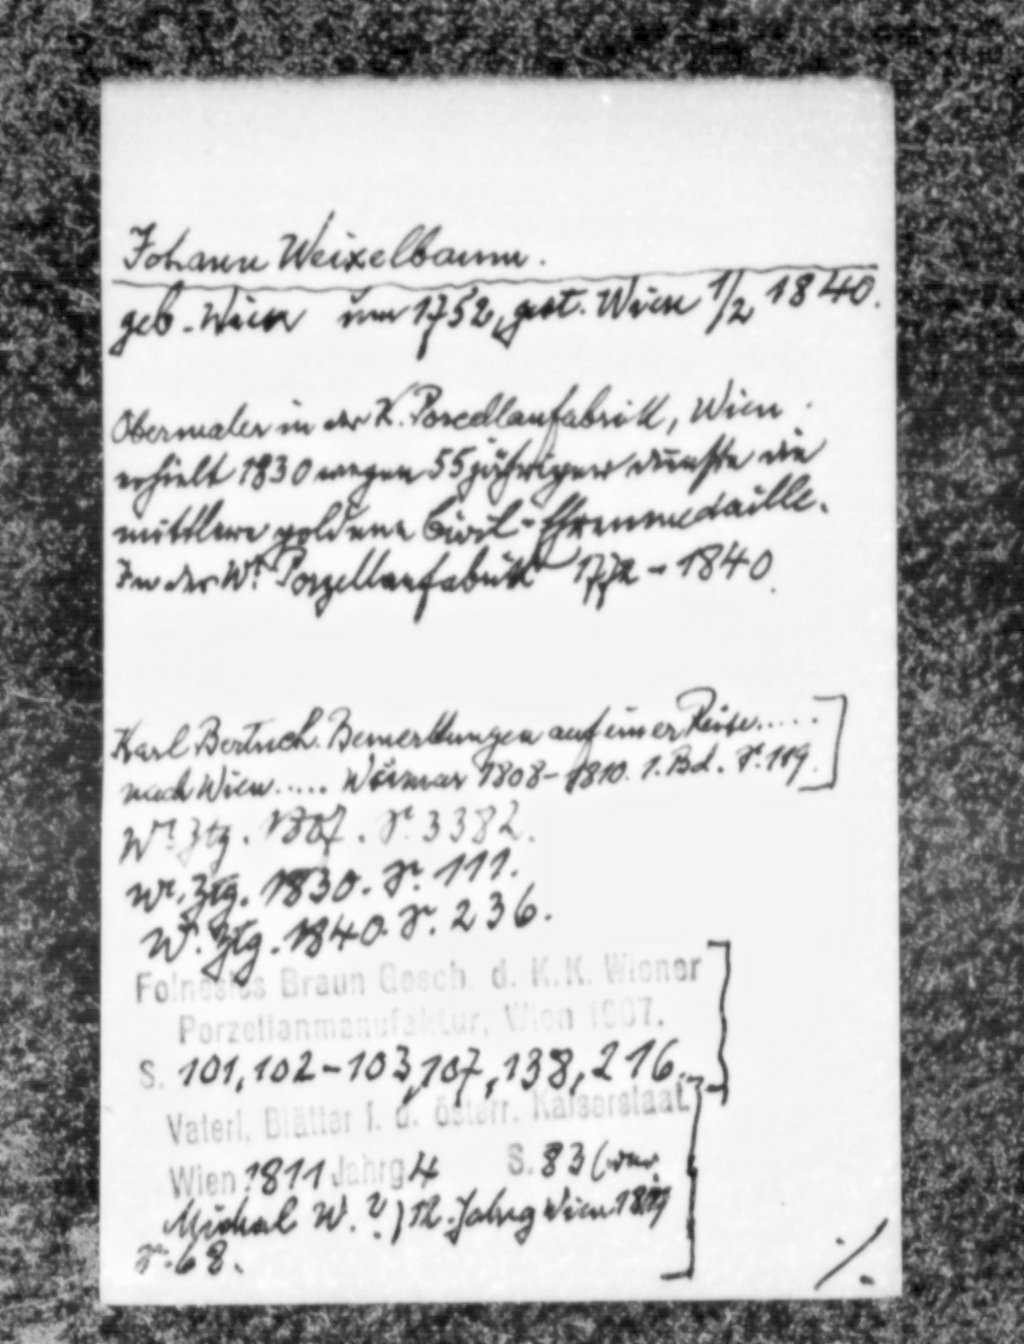 Johann Weixelbaum.
geb. Wien um 1752, gest. Wien 1/2 1840.
Obermaler in der K. Porcellanfabrik, Wien
erhielt 1830 wegen 55jähriger Dienste die
mittlere goldene Civil-Ehrenmedaille.
In der Wr. Porzellanfabrik 1772 - 1840.
Karl Bertuch. Bemerkungen auf einer Reise.....
nach Wien..... Weimar 1808-1810. 1. Bd. S. 119.
Wr. Ztg. 1807. S. 3382.
Wr. Ztg. 1830. S. 111.
Wr. Ztg. 1840. S. 236.
Folnesics Braun Gesch. d. K.K. Wiener
Porzellanmanufaktur, Wien 1907.
S. 101, 102-103, 107, 138, 216.
Vaterl. Blätter f. d. österr. Kaiserstaat.
Wien 1811 Jahrg 4 S. 83
Michael W. ?) 12. Jahrg Wien 1819
S. 68.